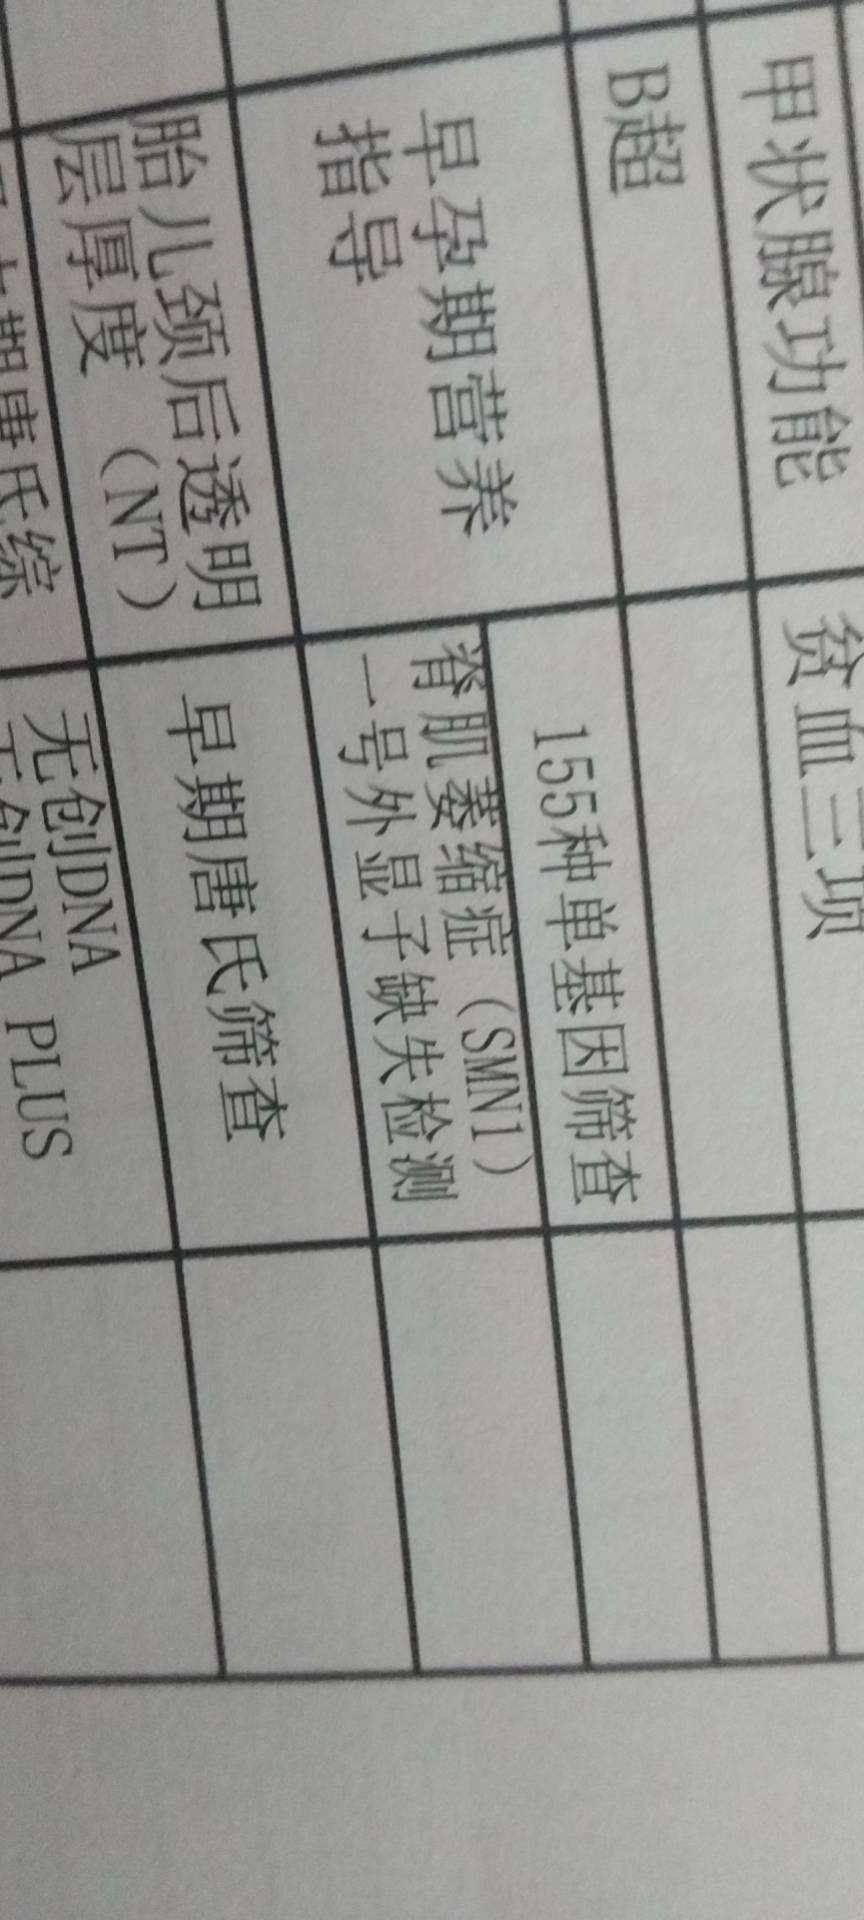 甲状腺功能
贫血三项
B超
早孕期营养
指导
155种单基因筛查
脊肌萎缩症（SMN1）
一号外显子缺失检测
胎儿颈后透明
层厚度（NT）
早期唐氏筛查
期唐氏综
无创DNA
无创DNA PLUS